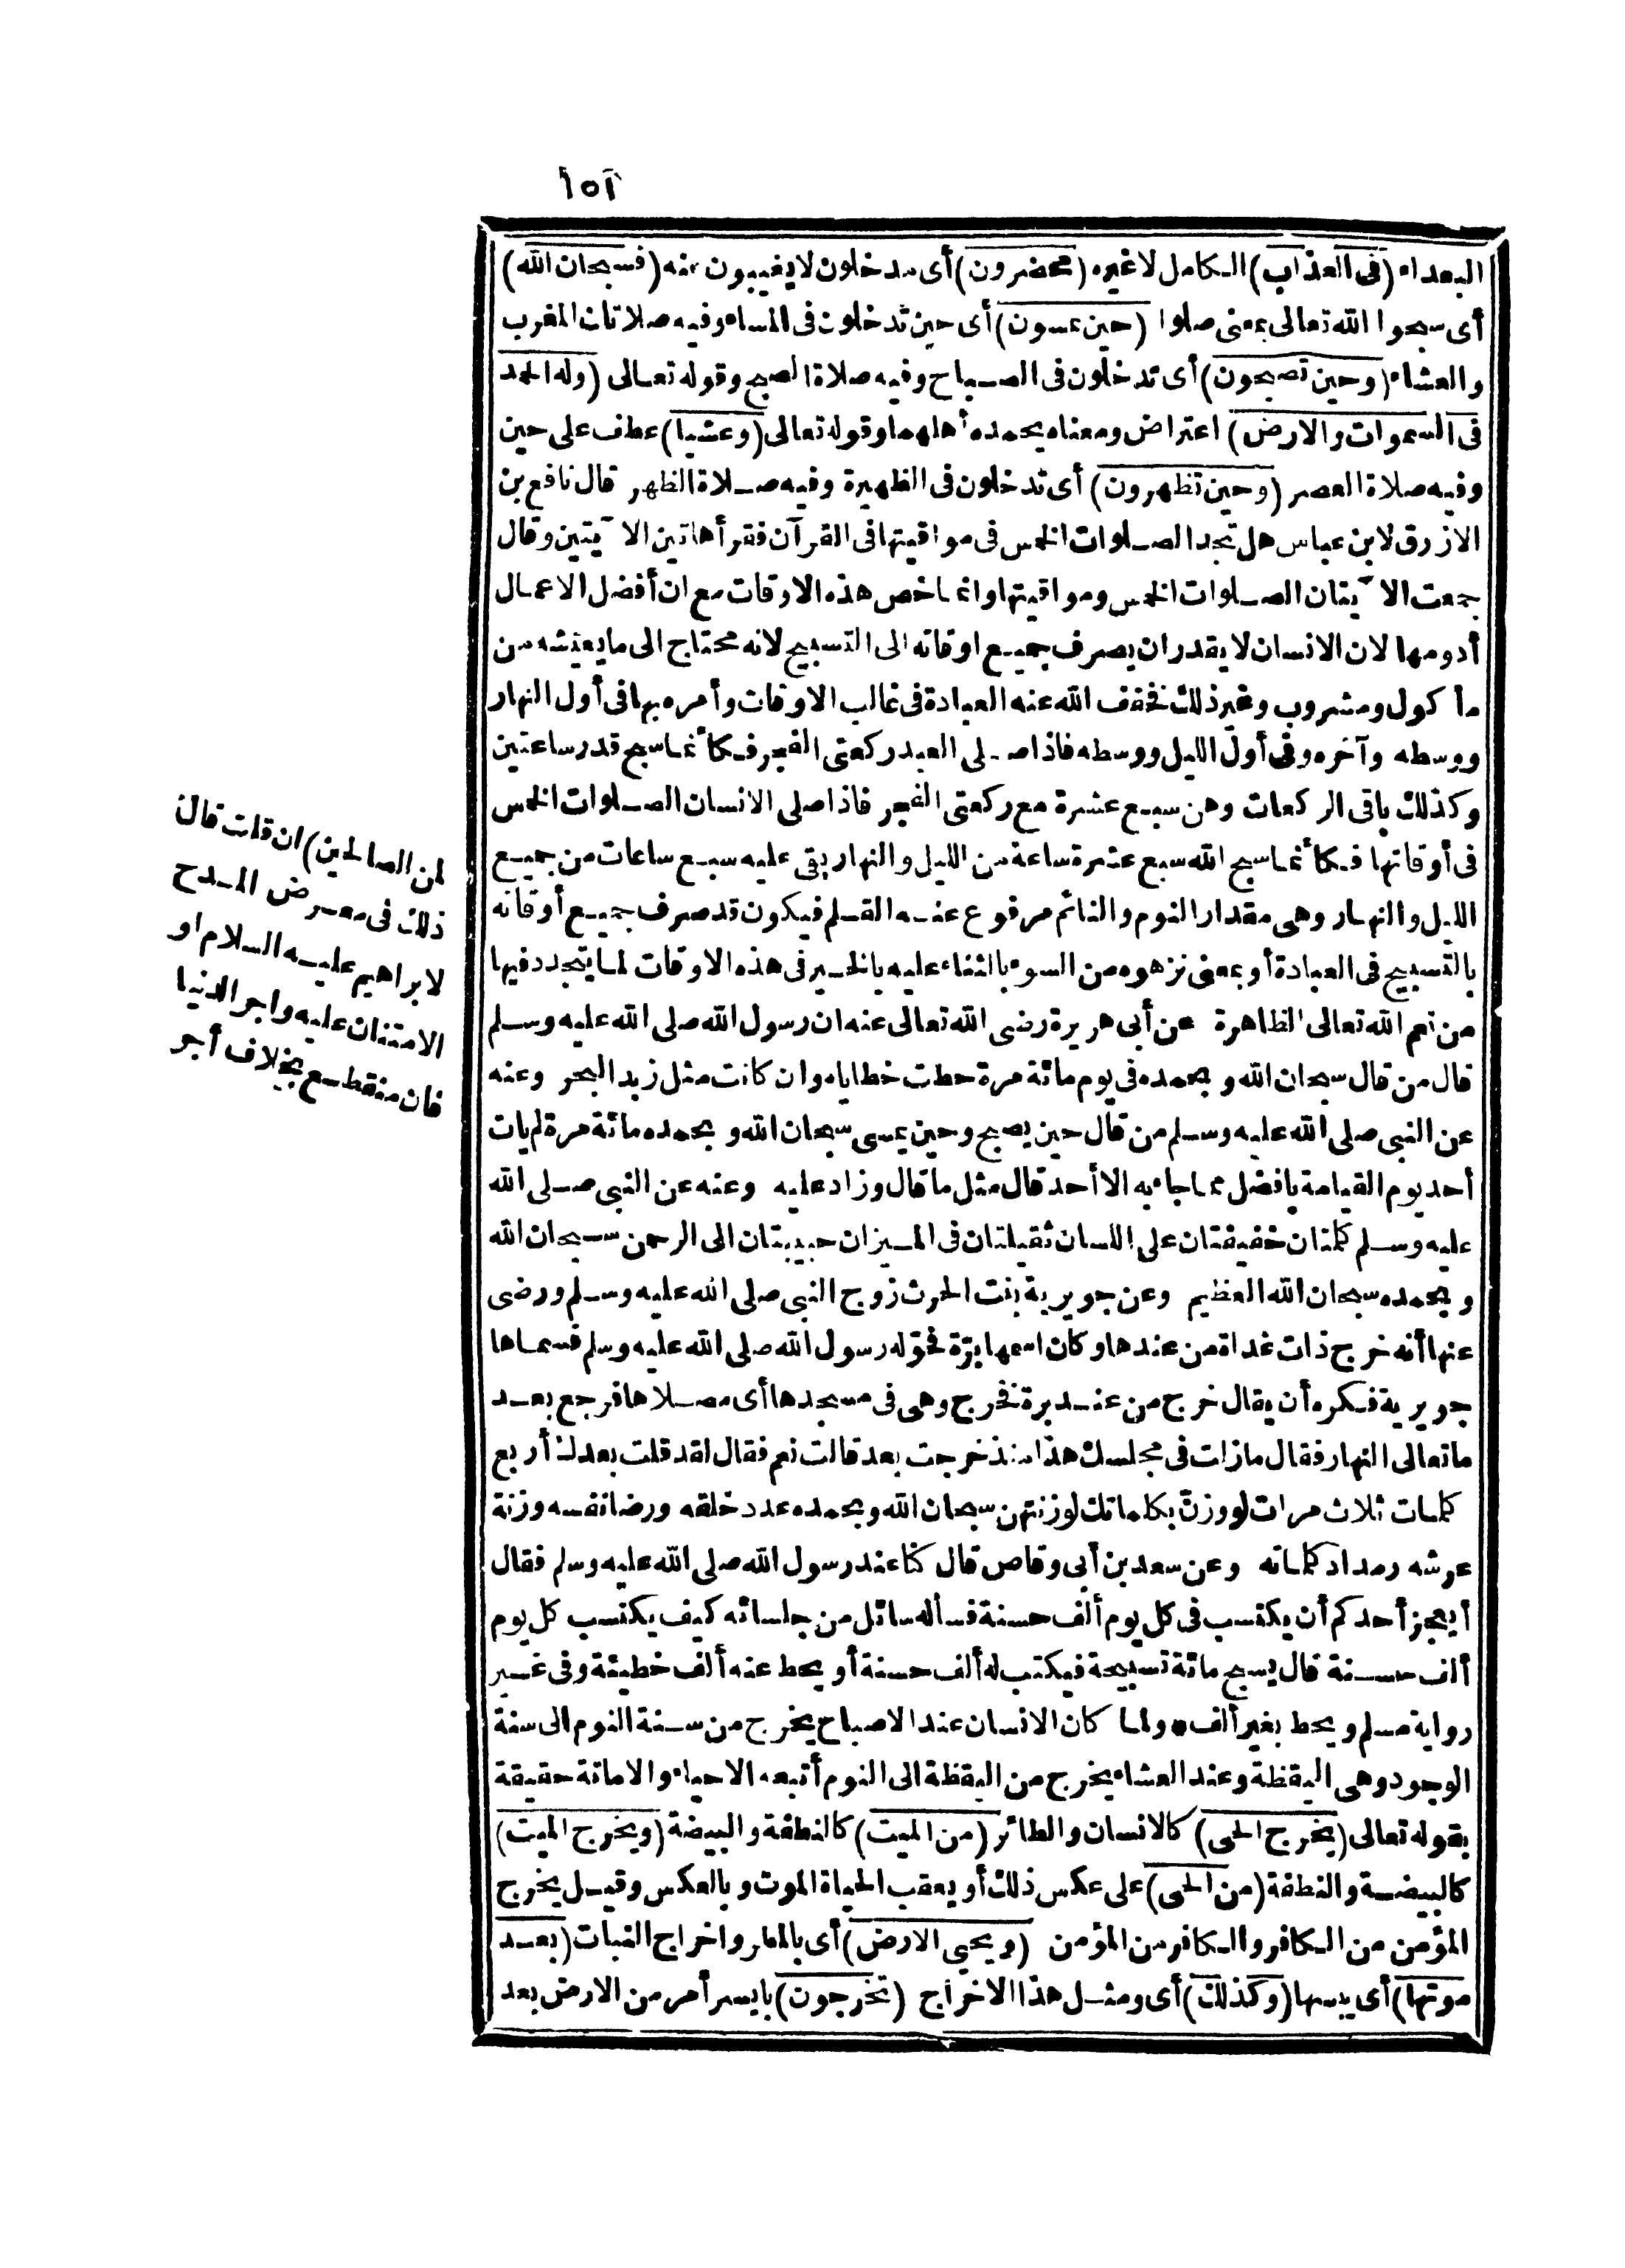 ١٥٢
البعداء (في العذاب) الكامل لا غيره (محضرون) أي مدخلون لا يغيبون عنه (فسبحان الله)
أي سبحوا الله تعالى بمعنى صلوا (حين تمسون) أي حين تدخلون في المساء وفيه صلاتان المغرب
والعشاء (وحين تصبحون) أي تدخلون في الصباح وفيه صلاة الصبح وقوله تعالى (وله الحمد
في السموات والارض) اعتراض ومعناه يحمده أهلهما وقوله تعالى (وعشيا) عطف على حين
وفيه صلاة العصر (وحين تظهرون) أي تدخلون في الظهيرة وفيه صلاة الظهر قال نافع بن
الازرق لابن عباس هل تجد الصلوات الخمس في مواقيتها في القرآن فقرأ هاتين الآيتين وقال
جمعت الآيتان الصلوات الخمس ومواقيتها وانما خص هذه الاوقات مع ان أفضل الاعمال
أدومها لان الانسان لا يقدر ان يصرف جميع اوقاته الى التسبيح لانه محتاج الى ما يعيشه من
مأكول ومشروب وغير ذلك فخفف الله عنه العبادة في غالب الاوقات وأمره بها في أول النهار
ووسطه وآخره وفي أول الليل ووسطه فاذا صلى العبد ركعتي الفجر فكأنما سبح قدر ساعتين
وكذلك باقي الركعات وهن سبع عشرة مع ركعتي الفجر فاذا صلى الانسان الصلوات الخمس
في أوقاتها فكأنما سبح الله سبع عشرة ساعة من الليل والنهار بقي عليه سبع ساعات من جميع
الليل والنهار وهي مقدار النوم والنائم مرفوع عنه القلم فيكون قد صرف جميع أوقاته
بالتسبيح في العبادة أو بمعنى نزهوه من السوء بالثناء عليه بالخير في هذه الاوقات لما يتجدد فيها
من نعم الله تعالى الظاهرة عن أبي هريرة رضي الله تعالى عنه ان رسول الله صلى الله عليه وسلم
قال من قال سبحان الله وبحمده في يوم مائة مرة حطت خطاياه وان كانت مثل زبد البحر وعنه
عن النبي صلى الله عليه وسلم من قال حين يصبح وحين يمسي سبحان الله وبحمده مائة مرة لم يات
أحد يوم القيامة بافضل مما جاء به الا أحد قال مثل ما قال وزاد عليه وعنه عن النبي صلى الله
عليه وسلم كلمتان خفيفتان على اللسان ثقيلتان في الميزان حبيبتان الى الرحمن سبحان الله
وبحمده سبحان الله العظيم وعن جويرية بنت الحرث زوج النبي صلى الله عليه وسلم ورضي
عنها أنه خرج ذات غداة من عندها وكان اسمها برّة فحوّله رسول الله صلى الله عليه وسلم فسماها
جويرية فكره أن يقال خرج من عند برة فخرج وهي في مسجدها أي مصلاها فرجع بعد
ما تعالى النهار فقال ما زلت في مجلسك هذا منذ خرجت بعد قالت نعم فقال لقد قلت بعدك أربع
كلمات ثلاث مرات لو وزنّ بكلماتك لوزنتهن سبحان الله وبحمده عدد خلقه ورضا نفسه وزنة
عرشه ومداد كلماته وعن سعد بن أبي وقاص قال كنا عند رسول الله صلى الله عليه وسلم فقال
أيعجز أحدكم أن يكتسب في كل يوم ألف حسنة فسأله سائل من جلسائه كيف يكتسب كل يوم
ألف حسنة قال يسبح مائة تسبيحة فيكتب له ألف حسنة أو يحط عنه ألف خطيئة وفي غير
رواية مسلم ويحط بغير ألف • ولما كان الانسان عند الاصباح يخرج من سنة النوم الى سنة
الوجود وهي اليقظة وعند العشاء يخرج من اليقظة الى النوم أتبعه الاحياء والاماتة حقيقة
بقوله تعالى (يخرج الحي) كالانسان والطائر (من الميت) كالنطفة والبيضة (ويخرج الميت)
كالبيضة والنطفة (من الحي) على عكس ذلك أو يعقب الحياة الموت وبالعكس وقيل يخرج
المؤمن من الكافر والكافر من المؤمن (ويحيي الارض) أي بالمطر واخراج النبات (بعد
موتها) أي يبسها (وكذلك) أي ومثل هذا الاخراج (تخرجون) بايسر أمر من الارض بعد
لمن الصالحين) ان قلت قال
ذلك في معرض المدح
لابراهيم عليه السلام او
الامتنان عليه واجر الدنيا
فان منقطع بخلاف أجر